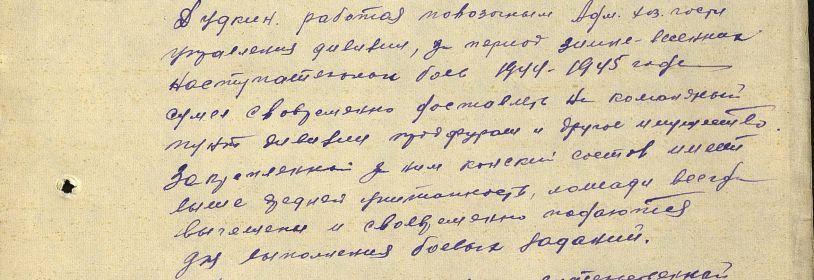 Дудкин. работая повозочным Адм. хоз. части
управления дивизии, за период зимне-весенних
наступательных боев 1944-1945 года
сумел своевременно доставлять на командный
пункт дивизии продфураж и другое имущество.
Закрепленный за ним конский состав имеет
выше средней упитанность, лошади всегда
вычещены и своевременно подаются
для выполнения боевых заданий.